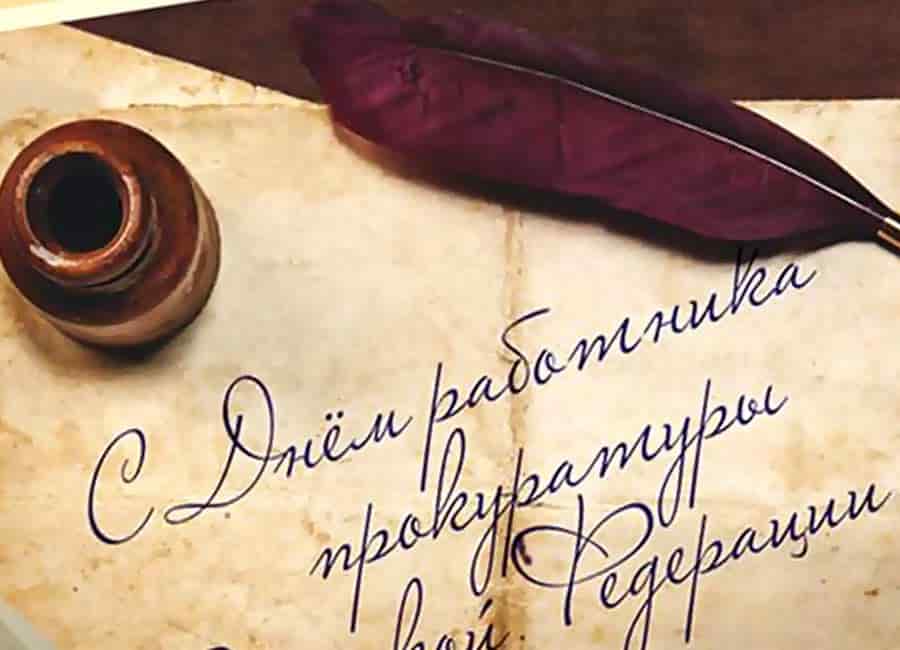 С Днём работника
прокуратуры
Федерации